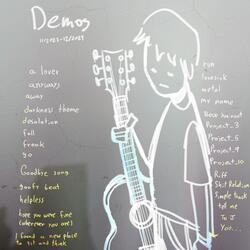 Demos
11/2023-12/2024
a lover
anyways
away
darkness theme
desolation
fall
freak
go
Goodbye song
goofy beat
helpless
hope you were fine
(wherever you are)
I found a new place
to sit and think
run
lovesick
metal
my name
Project_3
Project_5
Project_9
Project_10
Riff
Shit Relation
Simple track
tell me
To J
You...